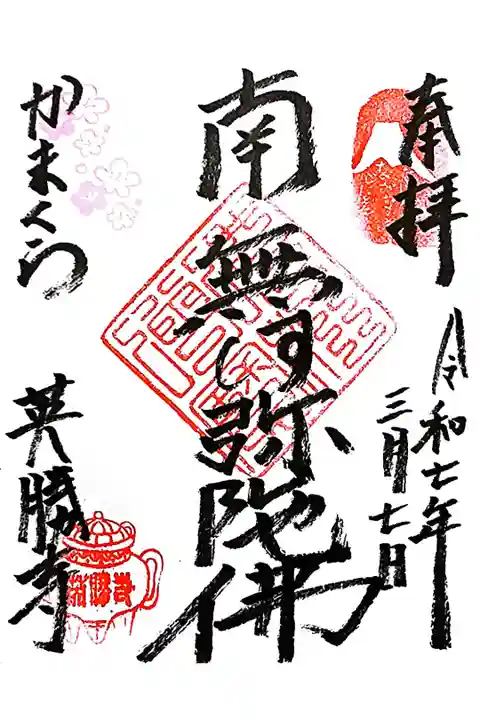 奉拝
令和七年
三月七日
南無阿弥陀佛
かまくら
英勝寺